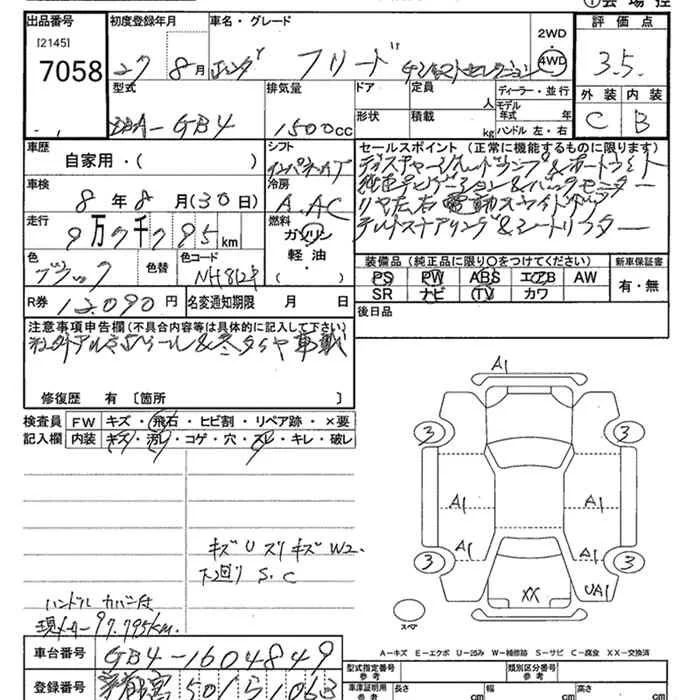 ①会場控
出品番号 初度登録年月 車名・グレード 2WD 評価点
[2145] 7058 27 8月 ホンダ フリード ジャストセレクション 4WD 3.5
型式 排気量 ドア 定員 人 ディーラー・並行 外装 内装
DBA-GB4 1500cc 形状 積載 kg モデル年式 年 ハンドル 左・右 C B
車歴 自家用・( ) シフト インパネAT
セールスポイント (正常に機能するものに限ります)
ディスチャージヘッドランプ&ポートライト
純正ナビゲーション&バックモニター
リヤ左右電動スライドドア
チルトステアリング&シートリフター
車検 8年8月(30日) 冷房 A.AC
走行 9万7千795km 燃料 ガソリン 軽油 ( )
色 ブラック 色替 色コード NH812P
装備品(純正品に限り○をつけてください) 新車保証書
PS PW ABS エアB AW 有・無
SR ナビ TV カワ
R券 12,090円 名変通知期限 月 日
後日品
注意事項申告欄(不具合内容等は具体的に記入して下さい)
社外アルミホイール&冬タイヤ車載
修復歴 有 〔箇所 〕
検査員 FW キズ・飛石・ヒビ割・リペア跡・×要
記入欄 内装 キズ・汚レ・コゲ・穴・スレ・キレ・破レ
キズUスリキズW2.
下廻りS.C
ハンドルカバー付
現メーター97,795km.
A1
3 3
A1 A1
A1 A1
3 3
XX UA1
スペア
A-キズ E-エクボ U-凹み W-補修跡 S-サビ C-腐食 XX-交換済
車台番号 GB4-1604849
登録番号 宇都宮501 ら1063
型式指定番号 参考 類別区分番号 参考
車庫証明用 参考 長さ cm 幅 cm 高さ cm